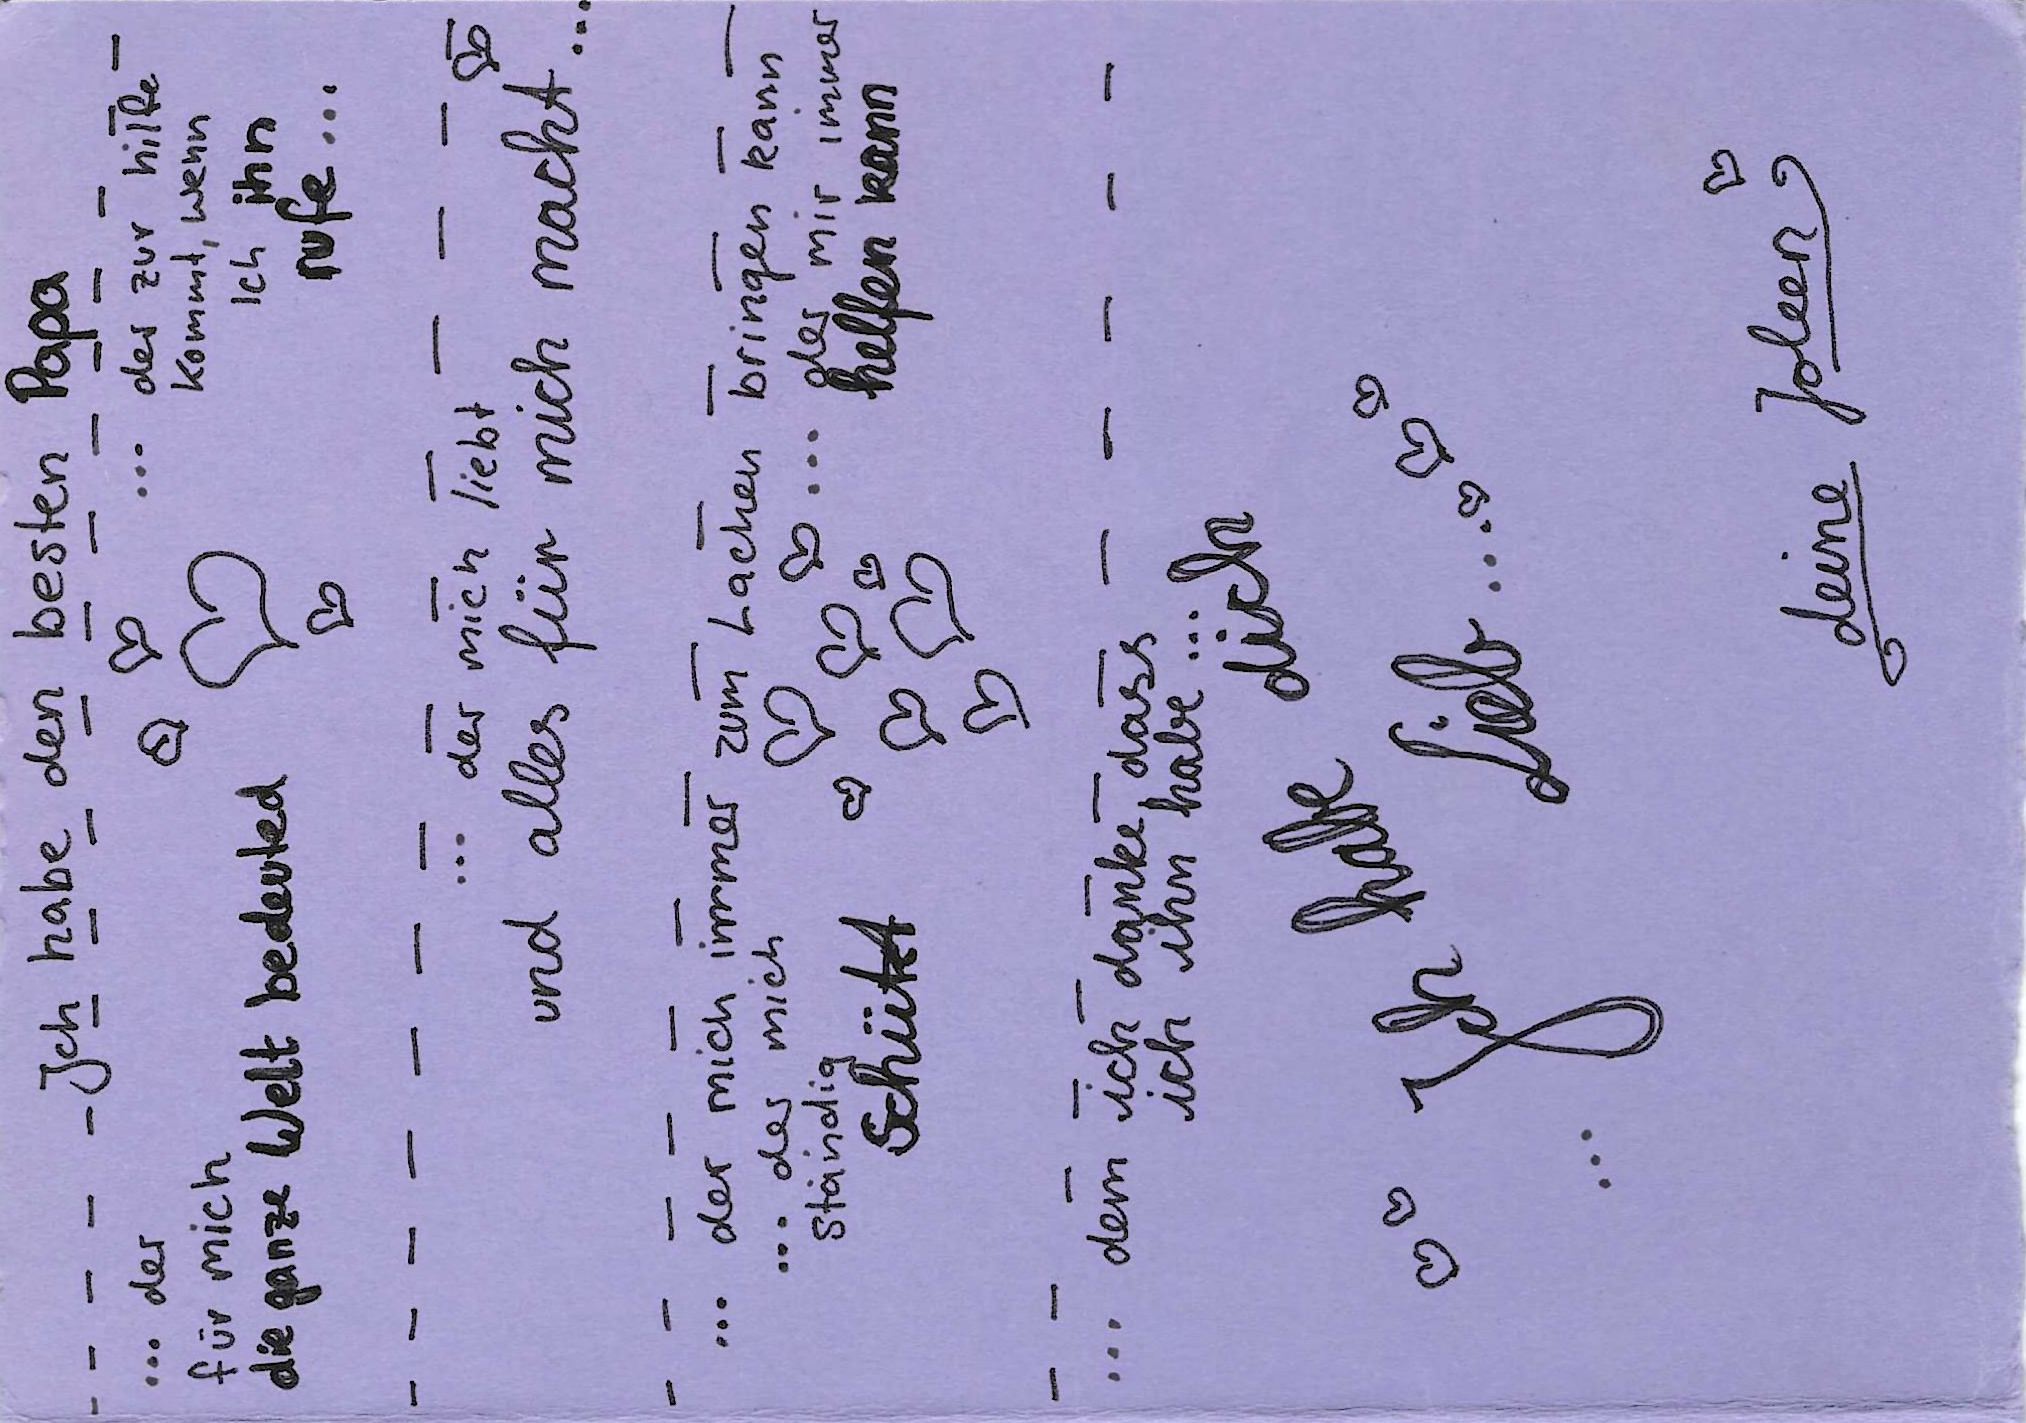 Ich habe den besten Papa
... der
für mich
die ganze Welt bedeuted
... der zur hilfe
kommt, wenn
ich ihn
rufe ...
... der mich liebt
und alles für mich macht ...
... der mich immer zum Lachen bringen kann
... der mich
ständig
Schützt
... der mir immer
helfen kann
... dem ich danke dass
ich ihn habe ...
... Ich habe dich
Lieb ...
deine Joleen